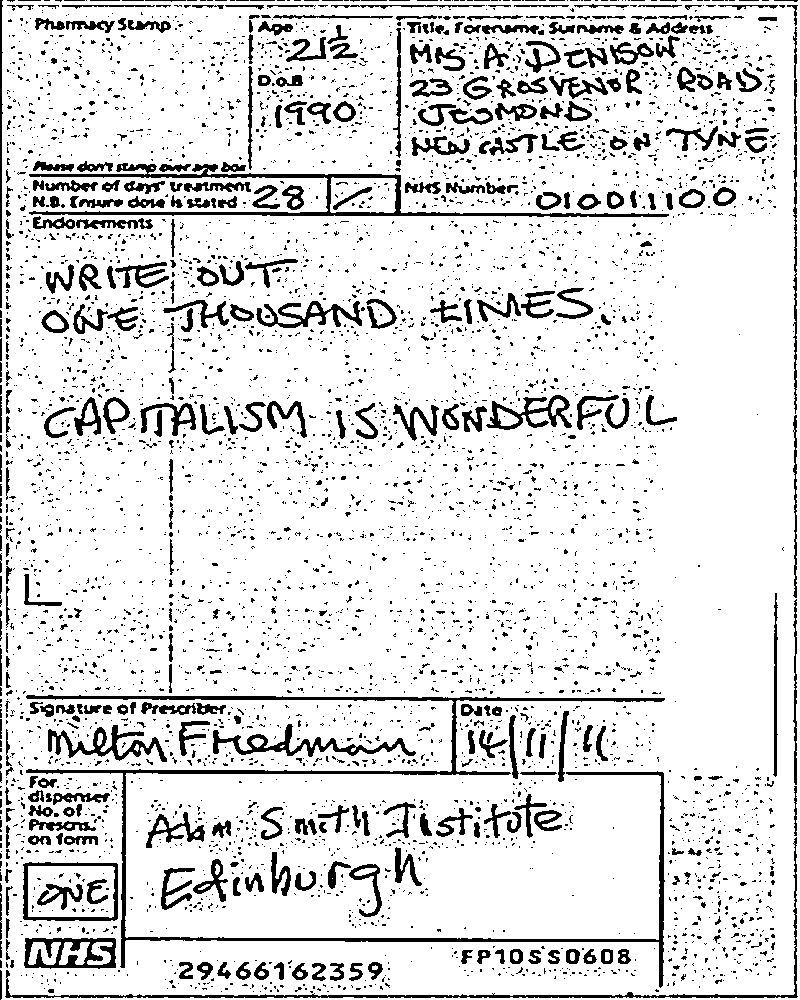 Pharmacy Stamp
Age
21½
D.o.B
1990
Please don't stamp over age box
Title, Forename, Surname & Address
MRS A DENISON
23 GROSVENOR ROAD
JESMOND
NEWCASTLE ON TYNE
Number of days' treatment
N.B. Ensure dose is stated
28
NHS Number:
010011100
Endorsements
WRITE OUT
ONE THOUSAND TIMES.
CAPITALISM IS WONDERFUL
Signature of Prescriber
Milton Friedman
Date
14/11/11
For
dispenser
No. of
Prescns.
on form
ONE
Adam Smith Institute
Edinburgh
NHS
29466162359
FP10SS0608